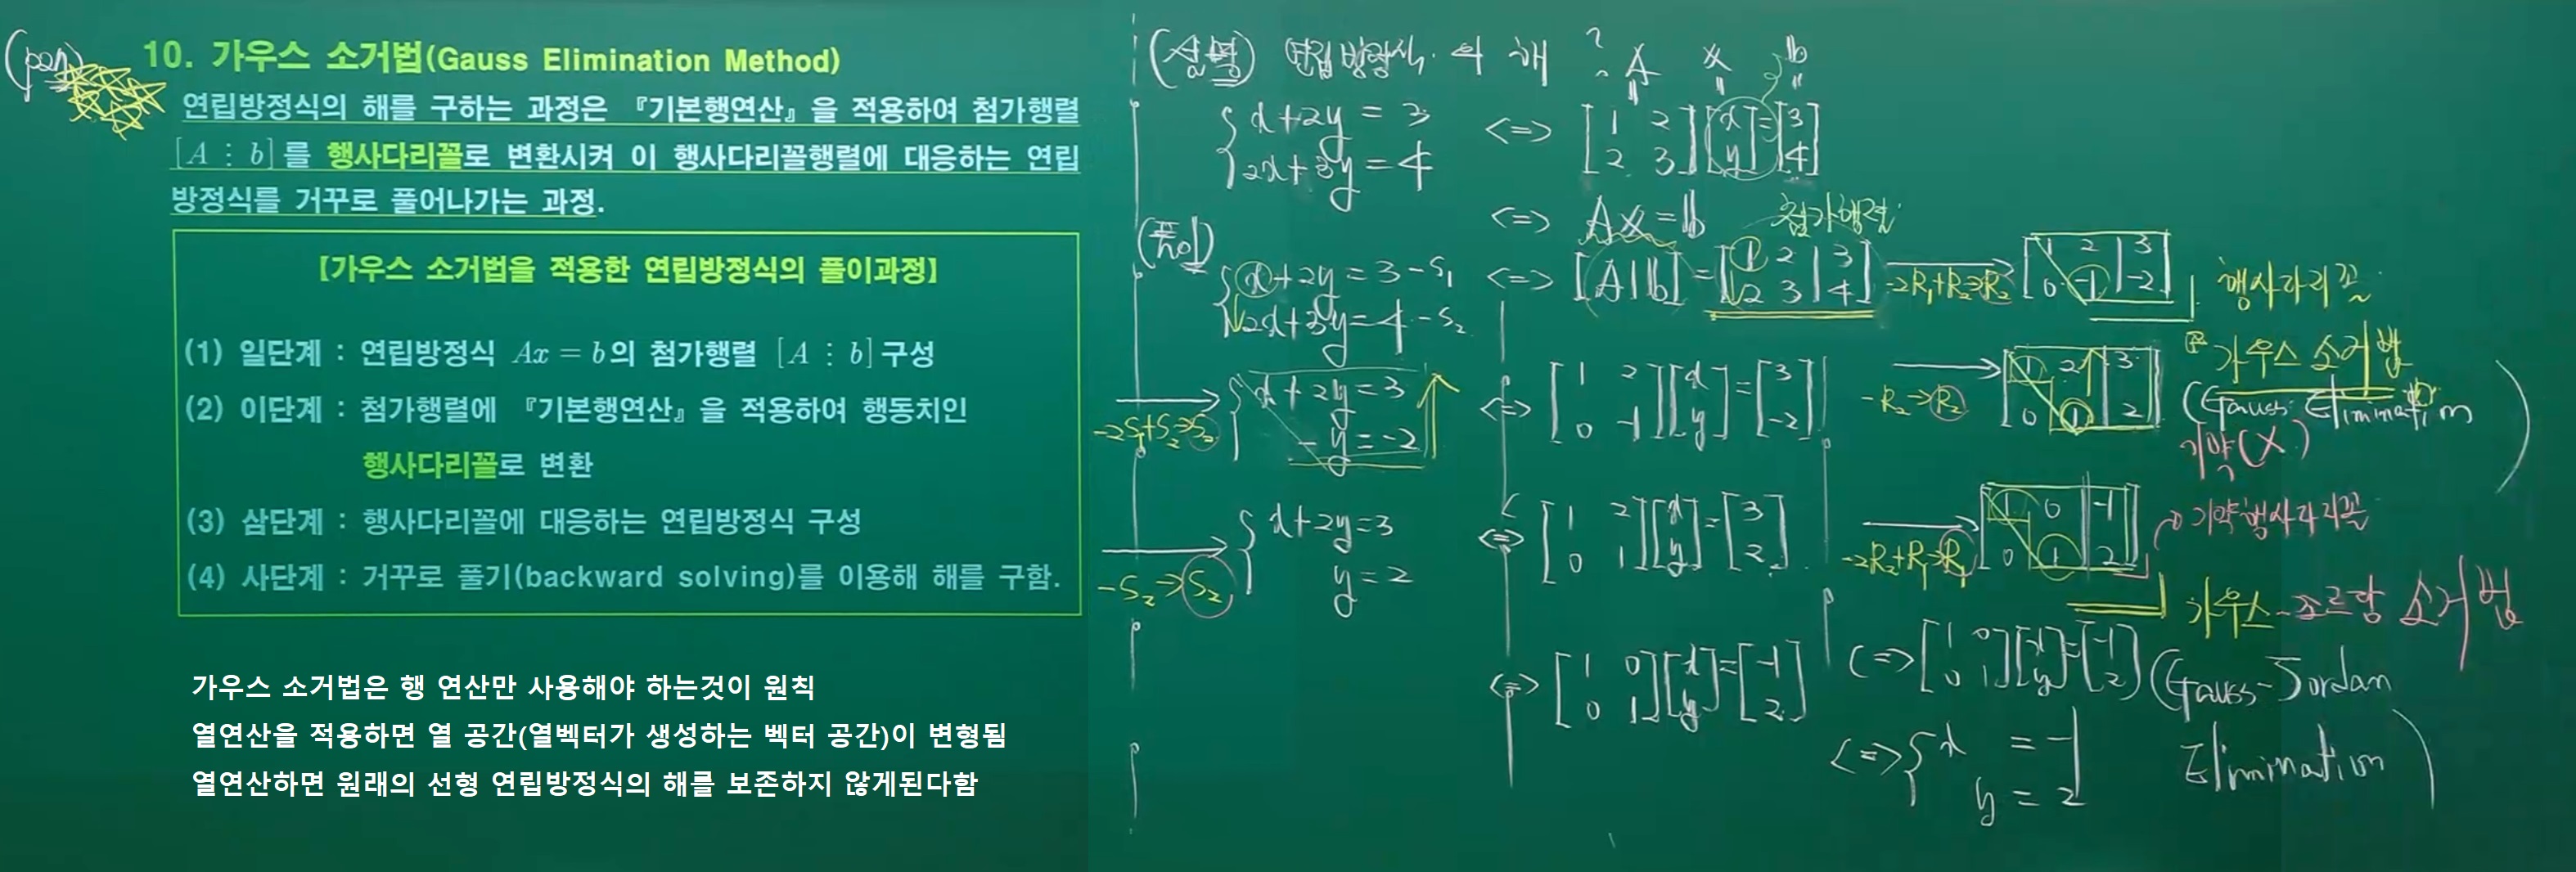 (pen)
10. 가우스 소거법(Gauss Elimination Method)
연립방정식의 해를 구하는 과정은 『기본행연산』을 적용하여 첨가행렬
[A ⋮ b]를 행사다리꼴로 변환시켜 이 행사다리꼴행렬에 대응하는 연립
방정식를 거꾸로 풀어나가는 과정.
【가우스 소거법을 적용한 연립방정식의 풀이과정】
(1) 일단계 : 연립방정식 Ax = b의 첨가행렬 [A ⋮ b] 구성
(2) 이단계 : 첨가행렬에 『기본행연산』을 적용하여 행동치인
행사다리꼴로 변환
(3) 삼단계 : 행사다리꼴에 대응하는 연립방정식 구성
(4) 사단계 : 거꾸로 풀기(backward solving)를 이용해 해를 구함.
가우스 소거법은 행 연산만 사용해야 하는것이 원칙
열연산을 적용하면 열 공간(열벡터가 생성하는 벡터 공간)이 변형됨
열연산하면 원래의 선형 연립방정식의 해를 보존하지 않게된다함
(설명) 연립방정식의 해 ?
A x b
x+2y = 3 <=> [1 2] [x] = [3]
2x+3y = 4 [2 3] [y] [4]
<=> Ax = b
첨가행렬
(풀이)
x+2y = 3 -S₁ <=> [A|b] = [1 2 | 3] [1 2 | 3]
2x+3y = 4 -S₂ [2 3 | 4] -2R₁+R₂→R₂ [0 -1 | -2]
행사다리꼴
x+2y = 3 <=> [1 2] [x] = [3] [1 2 | 3]
-2S₁+S₂→S₂ -y = -2 [0 -1] [y] [-2] -R₂→R₂ [0 1 | 2]
가우스 소거법
(Gauss Elimination)
기약(X)
x+2y = 3 <=> [1 2] [x] = [3] [1 0 | -1]
-S₂→S₂ y = 2 [0 1] [y] [2] -2R₂+R₁→R₁ [0 1 | 2]
기약행사다리꼴
가우스-조르당 소거법
<=> [1 0] [x] = [-1] <=> [1 0] [x] = [-1]
[0 1] [y] [2] [0 1] [y] [2]
(Gauss-Jordan
Elimination)
<=> x = -1
y = 2